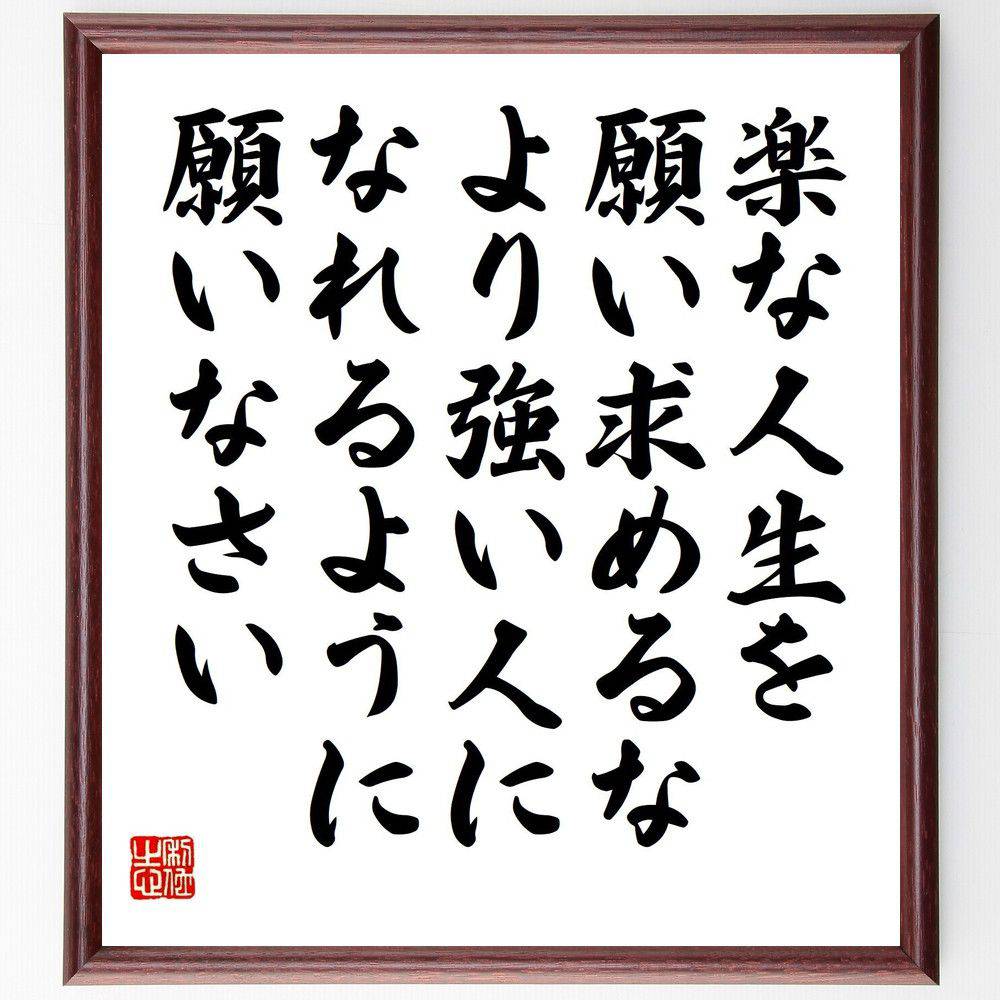 楽な人生を
願い求めるな
より強い人に
なれるように
願いなさい